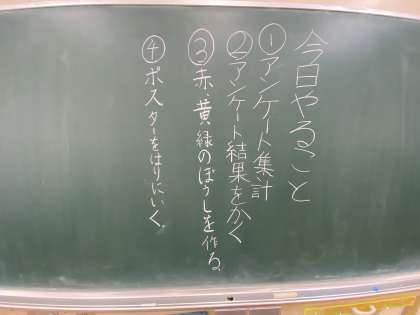 今日やること
①アンケート集計
②アンケート結果をかく
③赤、黄、緑のぼうしを作る
④ポスターをはりにいく。